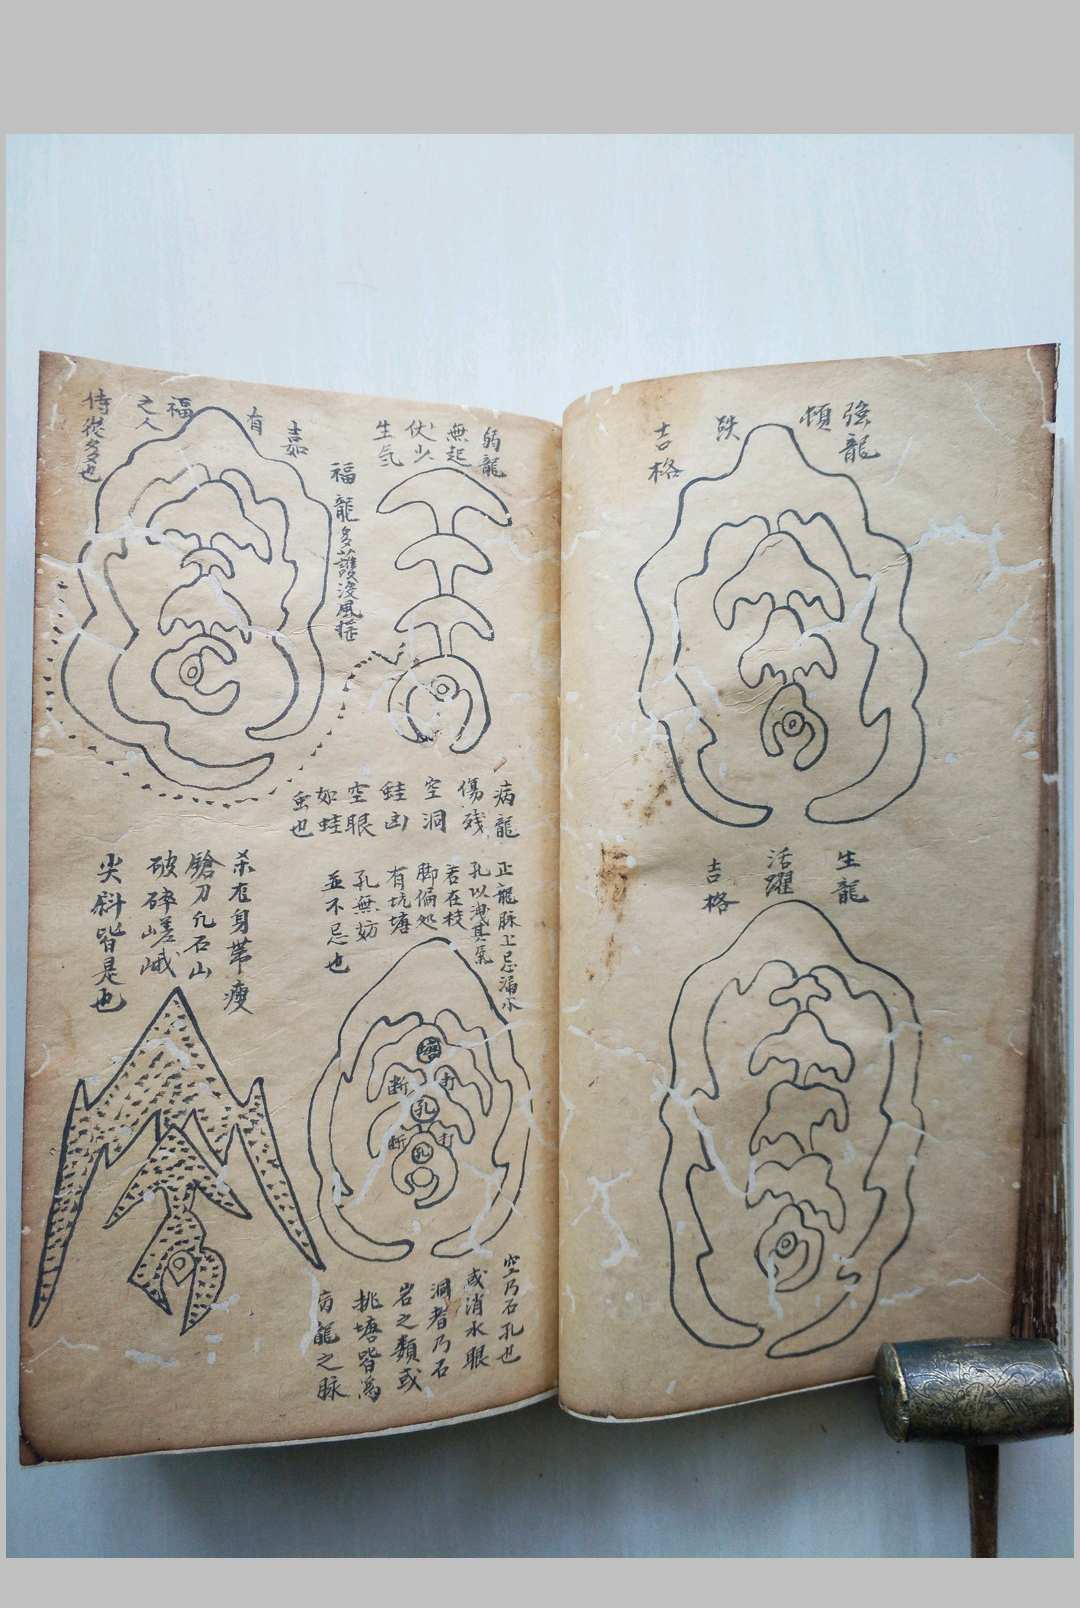 強龍
頓
跌
吉格
生龍
活躍
吉格
弱龍
無起
仗少
生氣
福龍多護沒風
嘉
有
福
之人
侍從多也
病龍
傷殘
空洞
蛙凶
空眼
如蛙
虫也
正龍脉上忌漏水
孔以洩其氣
若在枝
脚偏処
有坑塘
孔無妨
並不忌也
塘
断
打
孔
断
打
孔
空乃石孔也
或消水眼
洞者乃石
岩之類或
挑塘皆為
病龍之脉
杀在身帶瘦
鎗刀凢石山
破碎嵯峨
尖斜皆是也